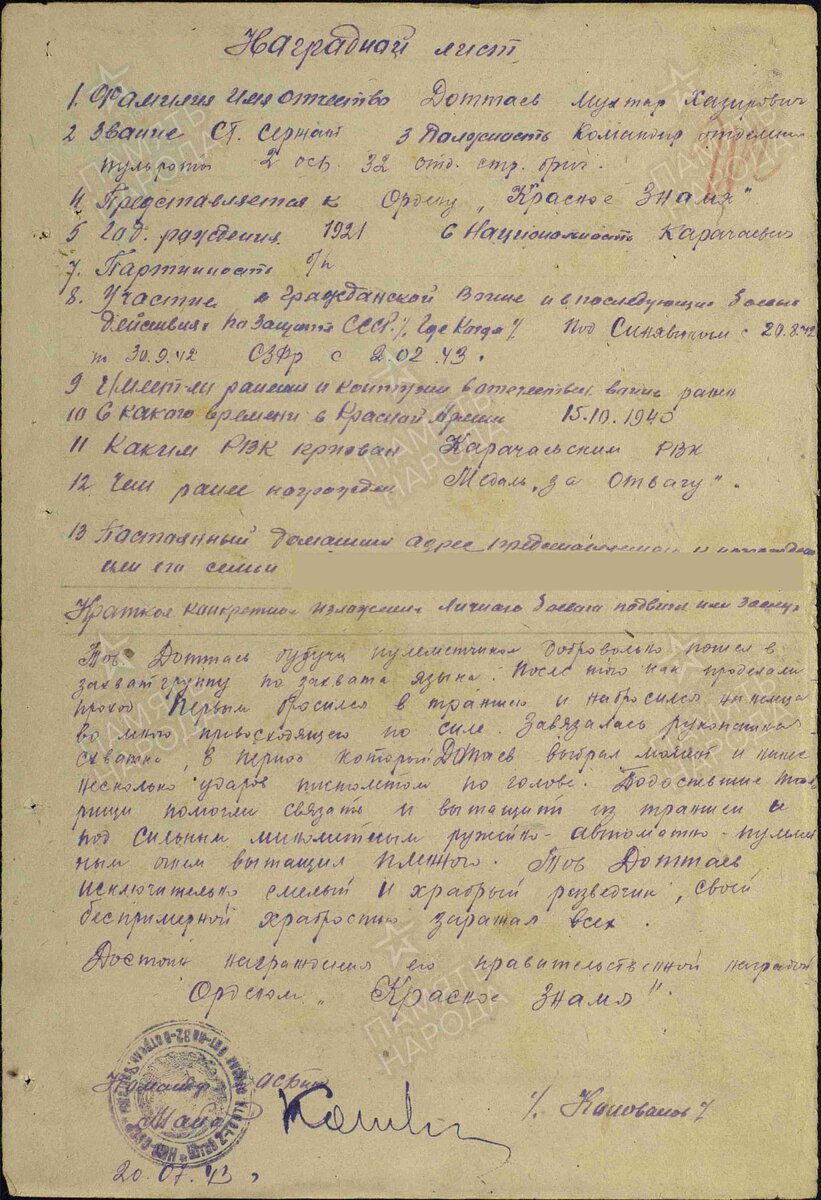 Наградной лист
1. Фамилия Имя отчество Доттаев Мухтар Хазирович
2 Звание Ст. Сержант 3 Должность Командир отделен
пульроты 2 осб. 32 отд. стр. бриг.
4 Представляется к Ордену „Красное Знамя"
5 Год. рождения 1921 6 Национальность Карачаевец
7. Партийность б/п
8. Участие в Гражданской Войне и в последующих боевых
действиях по защите СССР /. Где Когда / Под Синявином с 29.8.42
по 30.9.42 СЗФр с 2.02.43.
9 Имеет ли ранения и контузии в отечествен. войне ранен
10 С какого времени в Красной Армии 15.10.1940
11 Каким РВК призван Карачаевским РВК
12 Чем ранее награжден Медаль „за отвагу".
13 Постоянный домашний адрес представляемого и
или его семьи
Краткое конкретное изложение личного боевого подвига или заслуг
Тов. Доттаев будучи пулеметчиком добровольно пошел в
захват группу по захвата языка. После того как проделали
проход Первым бросился в траншею и набросился на немца
во много превосходящего по силе. Завязалась рукопашная
схватка, в период который Дотаев выбрал момент и нанес
несколько ударов пистолетом по голове. Подоспевшие това
рищи помогли связать и вытащить из траншеи и
под сильным минометным ружейно-автоматно-пулемет
ным огнем вытащил пленного. Тов Доттаев
исключительно смелый и храбрый разведчик, своей
беспримерной храбростью заражал всех.
Достоин награждения его правительственной наградой
Орденом „Красное Знамя".
Командир осб
Майор /. Колованов /
20.07.43 г
ПАМЯТЬ
НАРОДА